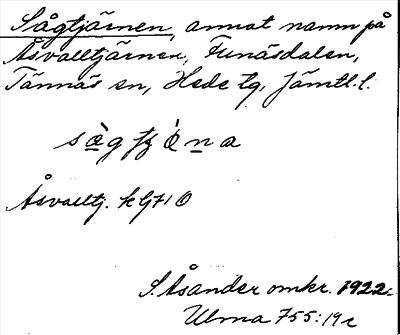 Sågtjärnen, annat namn på
Åsvalltjärnen, Funäsdalen,
Tännäs sn, Hede tg, Jämtl. l.
Åsvalltj.
S. Åsander omkr. 1922.
Ulma 755:19c